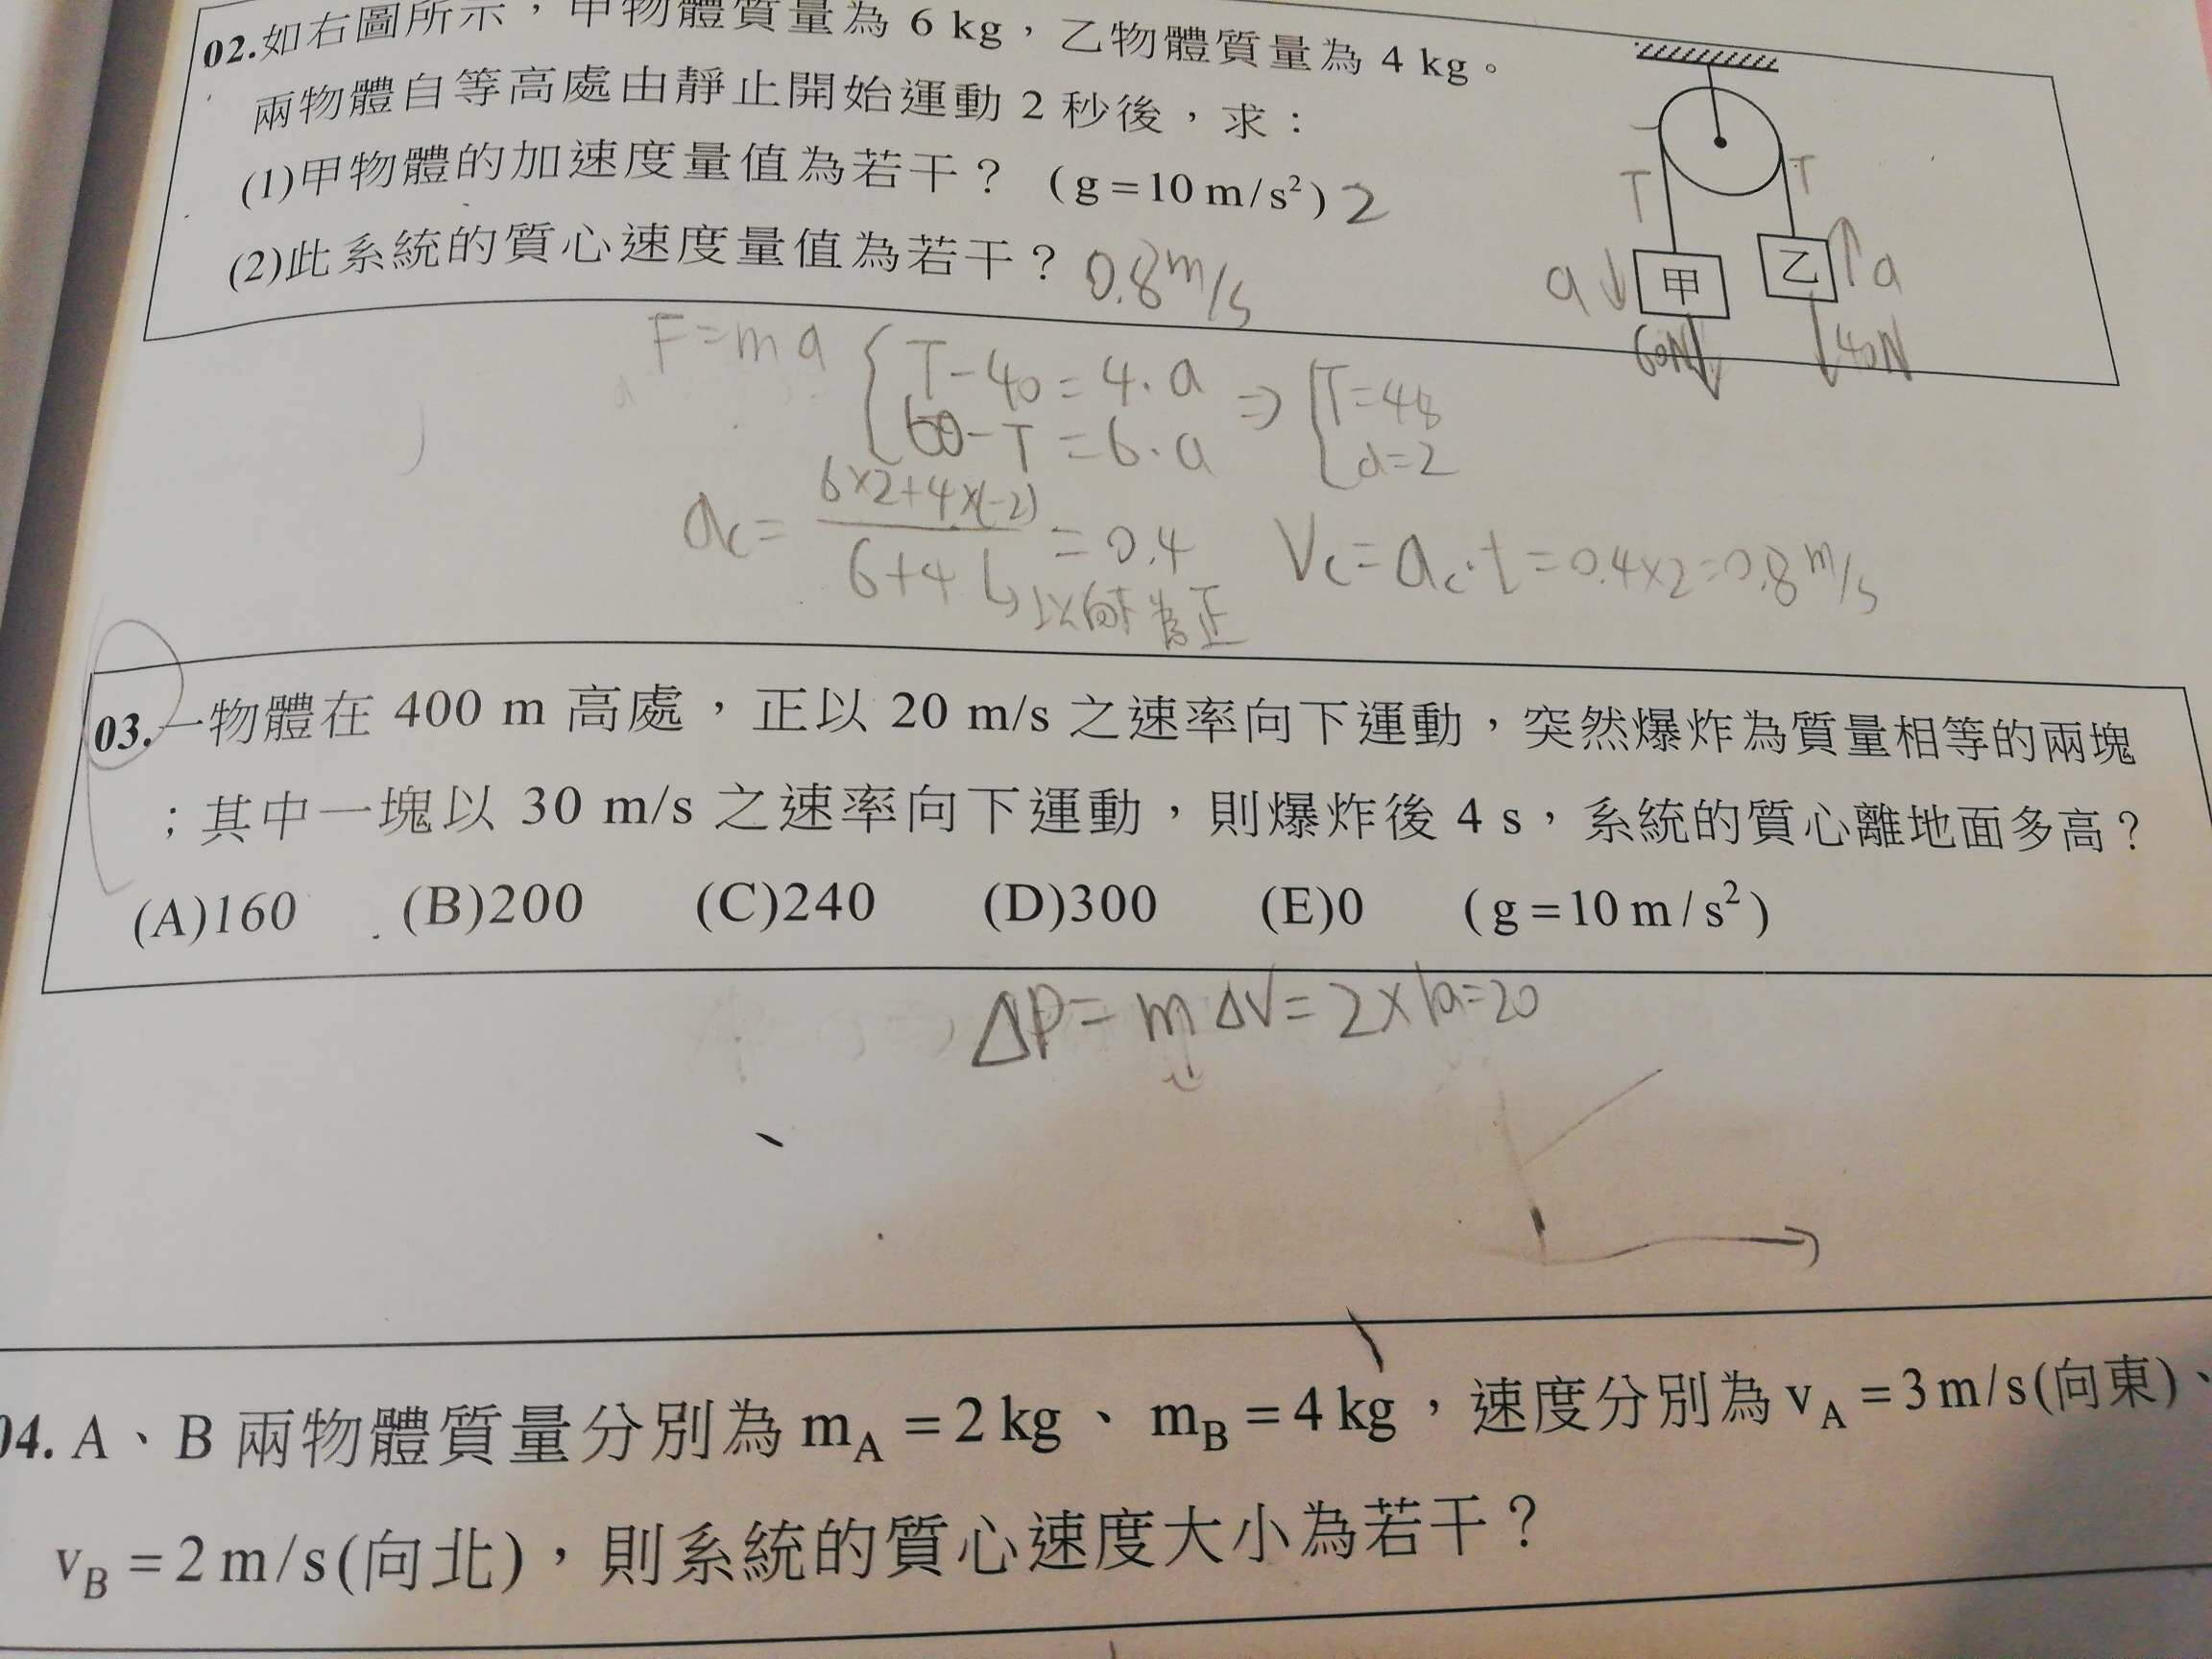 02.如右圖所示，甲物體質量為 6 kg，乙物體質量為 4 kg。
兩物體自等高處由靜止開始運動 2 秒後，求：
(1)甲物體的加速度量值為若干？ (g＝10 m/s²) 2
(2)此系統的質心速度量值為若干？ 0.8 m/s
T
T
a
甲
乙
a
60N
40N
F=ma
T-40=4·a
60-T=6·a
⇒
T=48
a=2
ac= (6×2+4×(-2))/(6+4) =0.4
Vc=ac·t=0.4×2=0.8 m/s
以向下為正
03.一物體在 400 m 高處，正以 20 m/s 之速率向下運動，突然爆炸為質量相等的兩塊
；其中一塊以 30 m/s 之速率向下運動，則爆炸後 4 s，系統的質心離地面多高？
(A)160 (B)200 (C)240 (D)300 (E)0 (g＝10 m/s²)
ΔP=mΔV=2×10=20
04. A、B 兩物體質量分別為 mA＝2 kg、mB＝4 kg，速度分別為 vA＝3 m/s(向東)、
vB＝2 m/s(向北)，則系統的質心速度大小為若干？